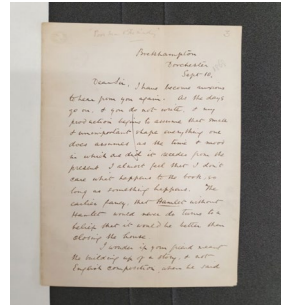 Bockhampton
Dorchester
Sept. 18,
Dear Sir,
I have become anxious
to hear from you again. As the days
go on, & you do not write, & my
production begins to assume that small
& unimportant shape everything one
does assumes as the time & mood
in which one did it recedes from the
present I almost feel that I don't
care what happens to the book, so
long as something happens. The
earlier fancy, that Hamlet without
Hamlet would never do turns to a
belief that it would be better than
closing the house.
I wonder if your friend meant
the building up of a story, & not
English composition, when he said